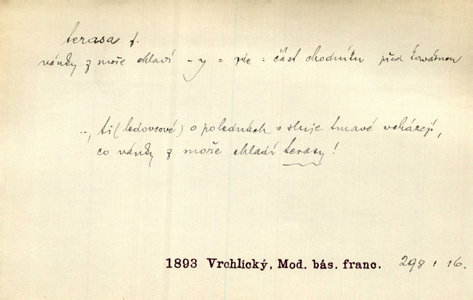 terasa f.
vánky z moře chladí - y = zde: část chodníku před kavárnou
-, ti (ledovcové) o polednách v sluje tmavé vcházejí,
co vánky z moře chladí terasy!
1893 Vrchlický, Mod. bás. franc. 298, 16.